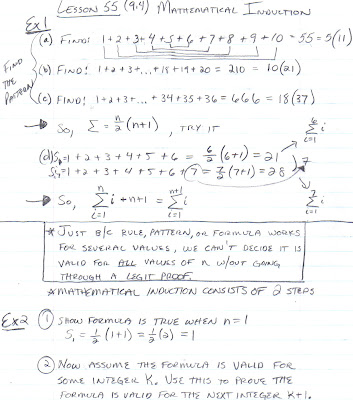 LESSON 55 (9.4) MATHEMATICAL INDUCTION
Ex1
FIND THE PATTERN
(a) FIND: 1+2+3+4+5+6+7+8+9+10 = 55 = 5(11)
(b) FIND: 1+2+3+...+18+19+20 = 210 = 10(21)
(c) FIND: 1+2+3+...+34+35+36 = 666 = 18(37)
→ So, Σ = n/2 (n+1), TRY IT
6 Σ i i=1
(d) S6 = 1+2+3+4+5+6 = 6/2 (6+1) = 21
S7 = 1+2+3+4+5+6+7 = 7/2 (7+1) = 28 7
→ So, n Σ i i=1 + n+1 = n+1 Σ i i=1
7 Σ i i=1
* JUST B/C RULE, PATTERN, OR FORMULA WORKS
FOR SEVERAL VALUES, WE CAN'T DECIDE IT IS
VALID FOR ALL VALUES OF n W/OUT GOING
THROUGH A LEGIT PROOF.
* MATHEMATICAL INDUCTION CONSISTS OF 2 STEPS
Ex2
① SHOW FORMULA IS TRUE WHEN n=1
S1 = 1/2 (1+1) = 1/2 (2) = 1
② NOW ASSUME THE FORMULA IS VALID FOR
SOME INTEGER K. USE THIS TO PROVE THE
FORMULA IS VALID FOR THE NEXT INTEGER K+1.